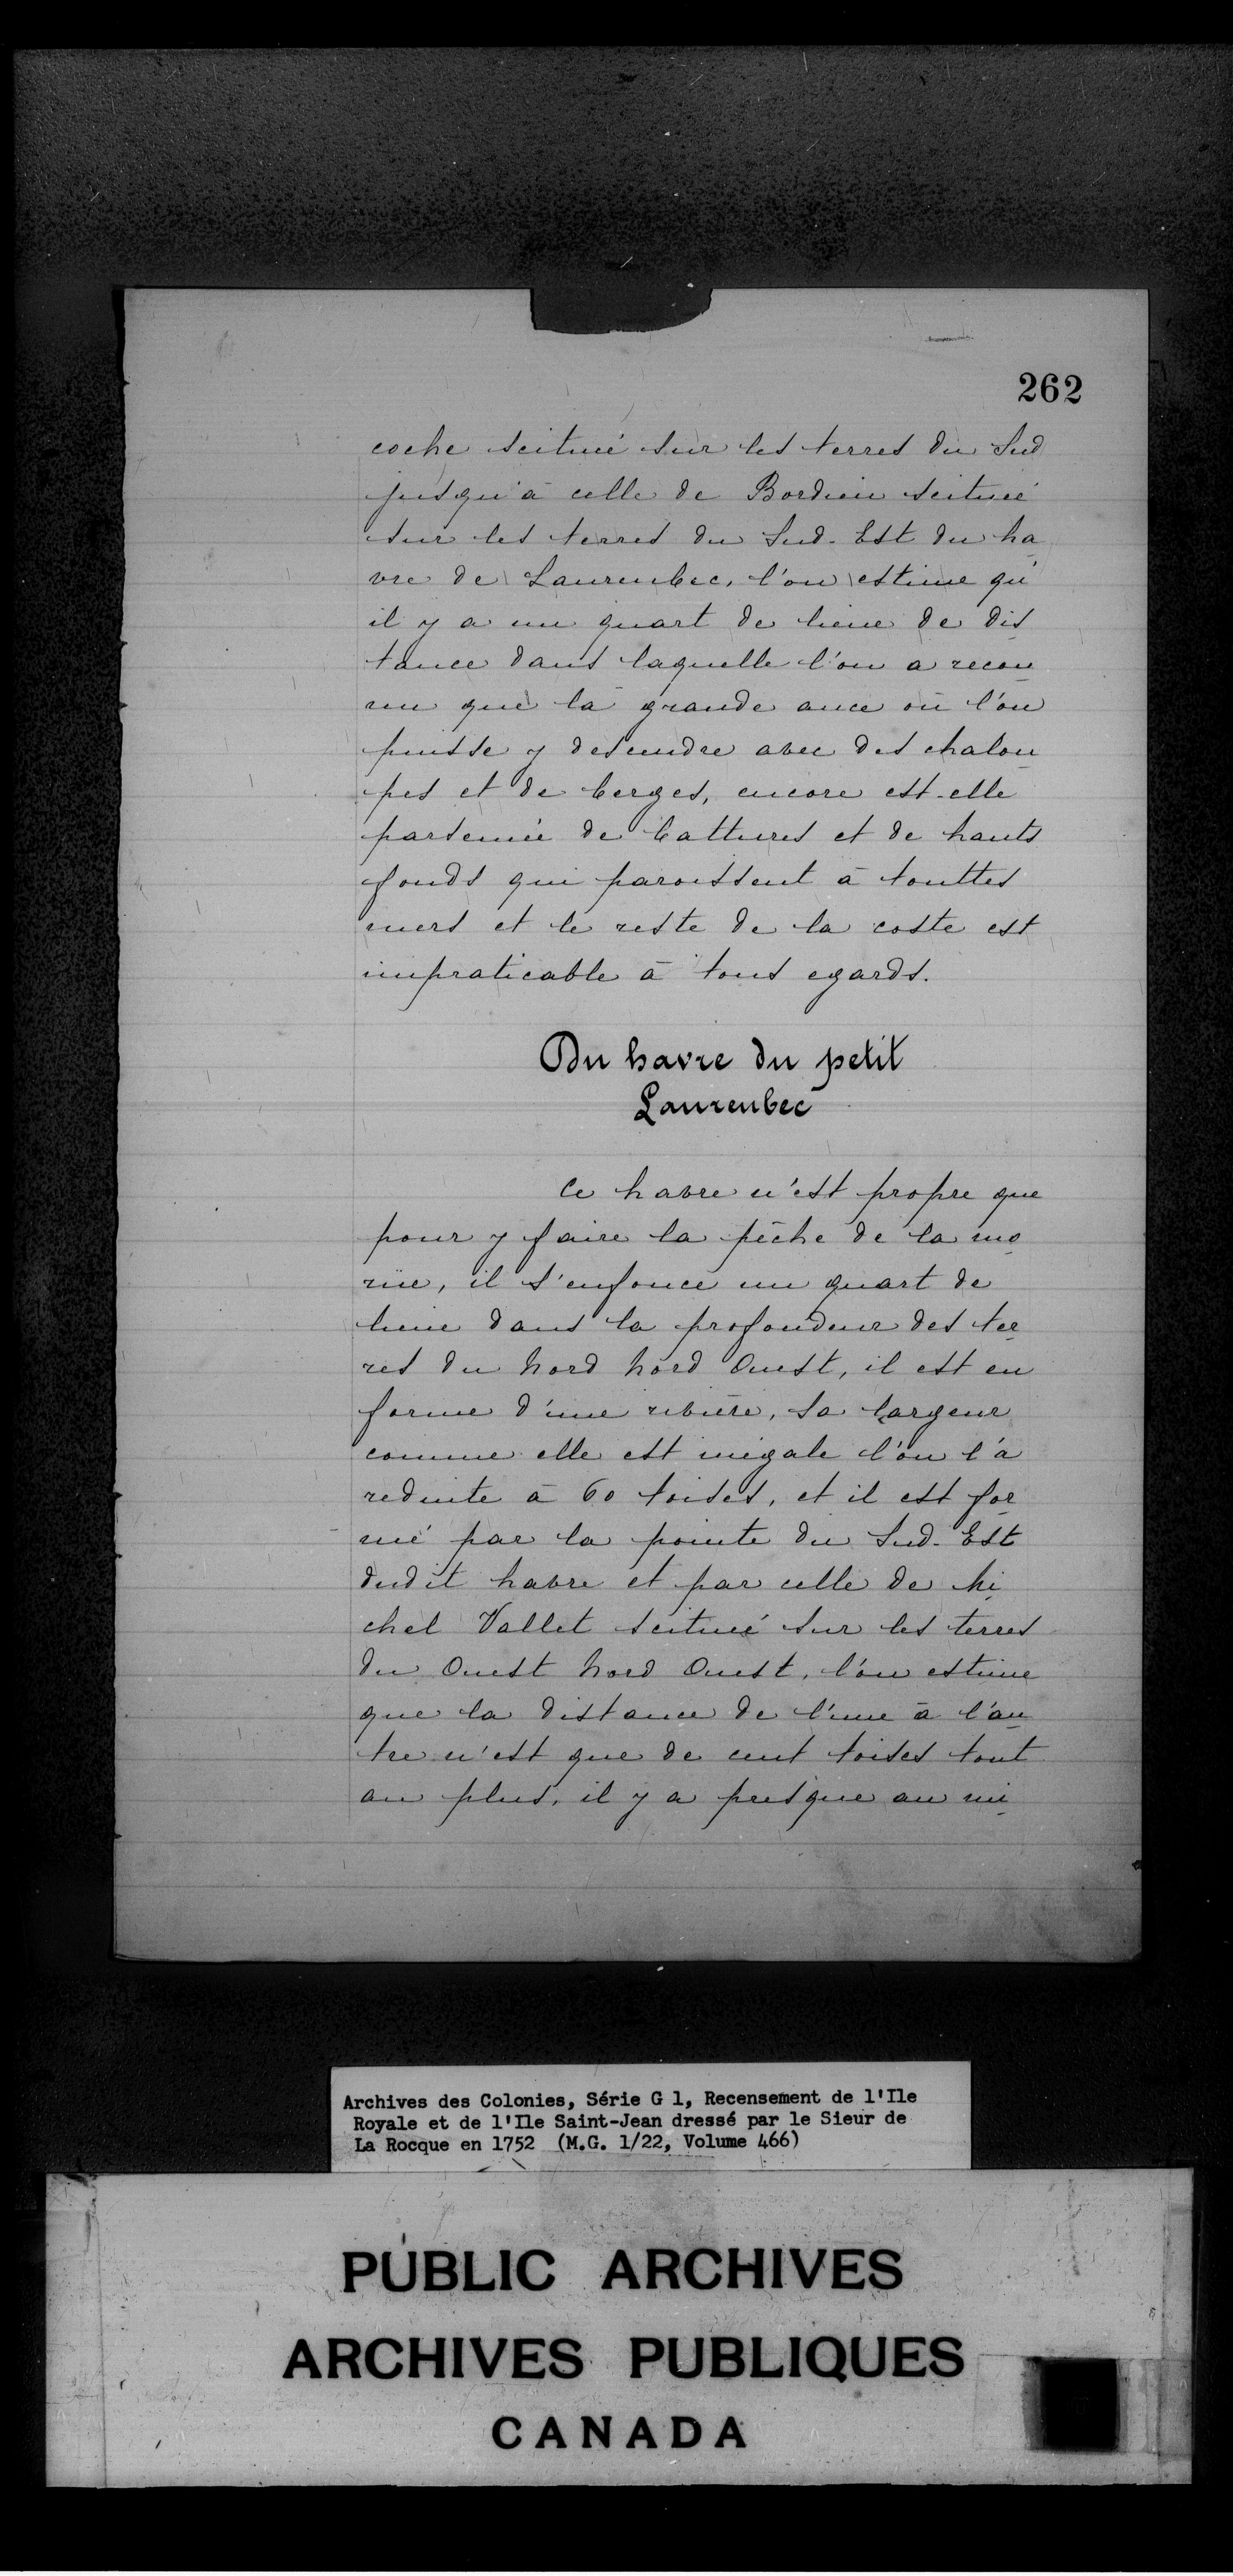 262
coche scitueé sur les terres du Sud
jusqu'à celle de Bordieu scitueé
sur les terres du Sud-Est du ha
vre de Laurenbec, l'on estime qu'
il y a un quart de lieue de dis
tance dans laquelle l'on a recon
nu que la grande ance où l'on
puisse y descendre avec des chalou
pes et de berges, encore est-elle
parsemée de battures et de hauts
fonds qui paroissent à touttes
mers et le reste de la coste est
impraticable à tous egards.
Du havre du petit
Laurenbec
Ce havre n'est propre que
pour y faire la pêche de la mo
rüe, il s'enfonce un quart de
lieue dans la profondeur des ter
res du Nord Nord Ouest, il est en
forme d'une rivière, sa largeur
comme elle est inégale l'on l'a
reduite à 60 toises, et il est for
mé par la pointe du Sud-Est
dudit havre et par celle de Mi
chel Vallet scitueé sur les terres
du Ouest Nord Ouest, l'on estime
que la distance de l'une à l'au
tre n'est que de cent toises tout
au plus, il y a presque au mi
Archives des Colonies, Série G 1, Recensement de l'Ile
Royale et de l'Ile Saint-Jean dressé par le Sieur de
La Rocque en 1752 (M.G. 1/22, Volume 466)
PUBLIC ARCHIVES
ARCHIVES PUBLIQUES
CANADA